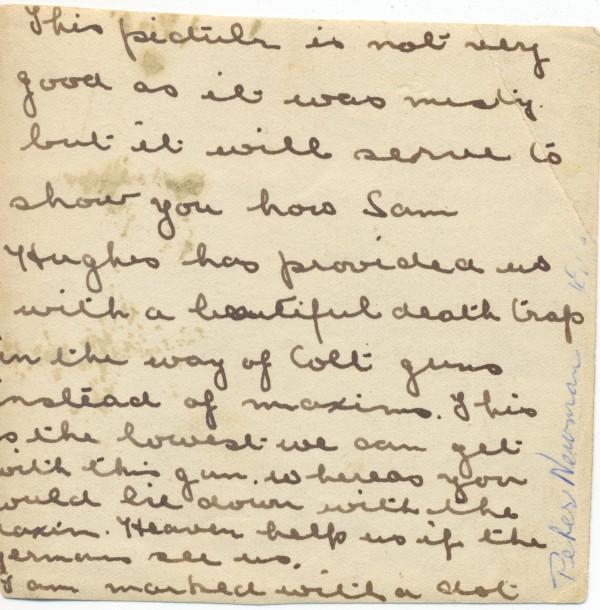 This picture is not very
good as it was misty.
but it will serve to
show you how Sam
Hughes has provided us
with a beautiful death trap
in the way of Colt guns
instead of maxims. This
is the lowest we can get
with this gun. whereas you
could lie down with the
maxim. Heaven help us if the
germans see us.
I am marked with a dot
Peter Newman